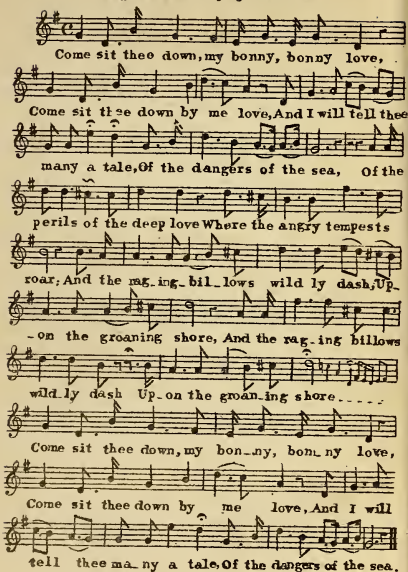 Come sit thee down, my bonny, bonny love,
Come sit thee down by me love, And I will tell thee
many a tale, Of the dangers of the sea, Of the
perils of the deep love Where the angry tempests
roar; And the rag_ing_bil_lows wild ly dash; Up_
_on the groaning shore, And the rag_ing billows
wild_ly dash Up_on the groan_ing shore_____
Come sit thee down, my bon_ny, bon_ny love,
Come sit thee down by me love, And I will
tell thee ma_ny a tale, Of the dangers of the sea.